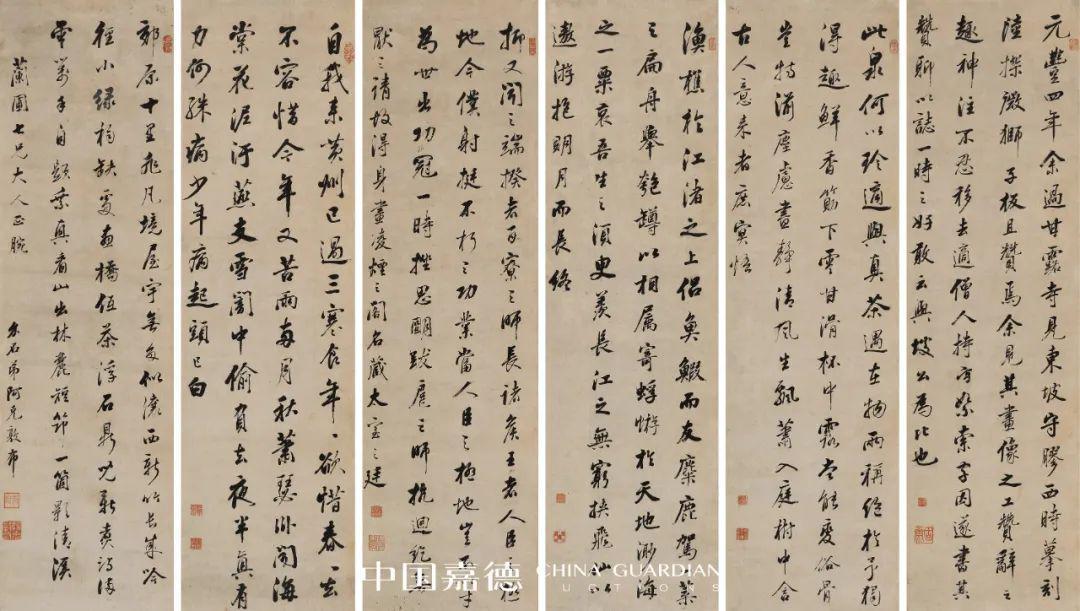 元豐四年余過甘露寺見東坡守膠西時摹刻
陸探微獅子板且贊焉余見其畫像之工贊辭之
趣神注不忍移去適僧人持方絮索字因遂書其
贊聊以誌一時之好敢云與坡公為比也
此泉何以珍適與真茶遇在物兩稱絕於予獨
得趣鮮香筯下雲甘滑杯中露尝能變俗骨
豈特湔塵慮晝靜清風生飄蕭入庭樹中含
古人意來者庶冥悟
漁樵於江渚之上侶魚鰕而友麋鹿駕一葉
之扁舟舉匏罇以相屬寄蜉蝣於天地渺海
之一粟哀吾生之須臾羨長江之無窮挾飛仙以
遨游抱明月而長終
抑又聞之端揆者百寮之師長諸侯王者人臣之極
地今僕射挺不朽之功業當人臣之極地豈不以才
為世出功冠一時挫思明跋扈之師抗迴紇無
厭之請故得身畫凌煙之閣名藏太室之廷
自我來黃州已過三寒食年、欲惜春、去
不容惜今年又苦雨兩月秋蕭瑟卧聞海
棠花泥汙燕支雪闇中偷負去夜半真有
力何殊病少年病起頭已白
郊原十里非凡境屋宇無多似讓西新竹長成吟
徑小綠楊缺處畫橋低茶浮石鼎煮詩滿
雲手自題看山出林麓短筇一箇影清溪
蘭圃七兄大人正腕
石弟阿克敦布
中国嘉德 CHINA GUARDIAN
AUCTIONS